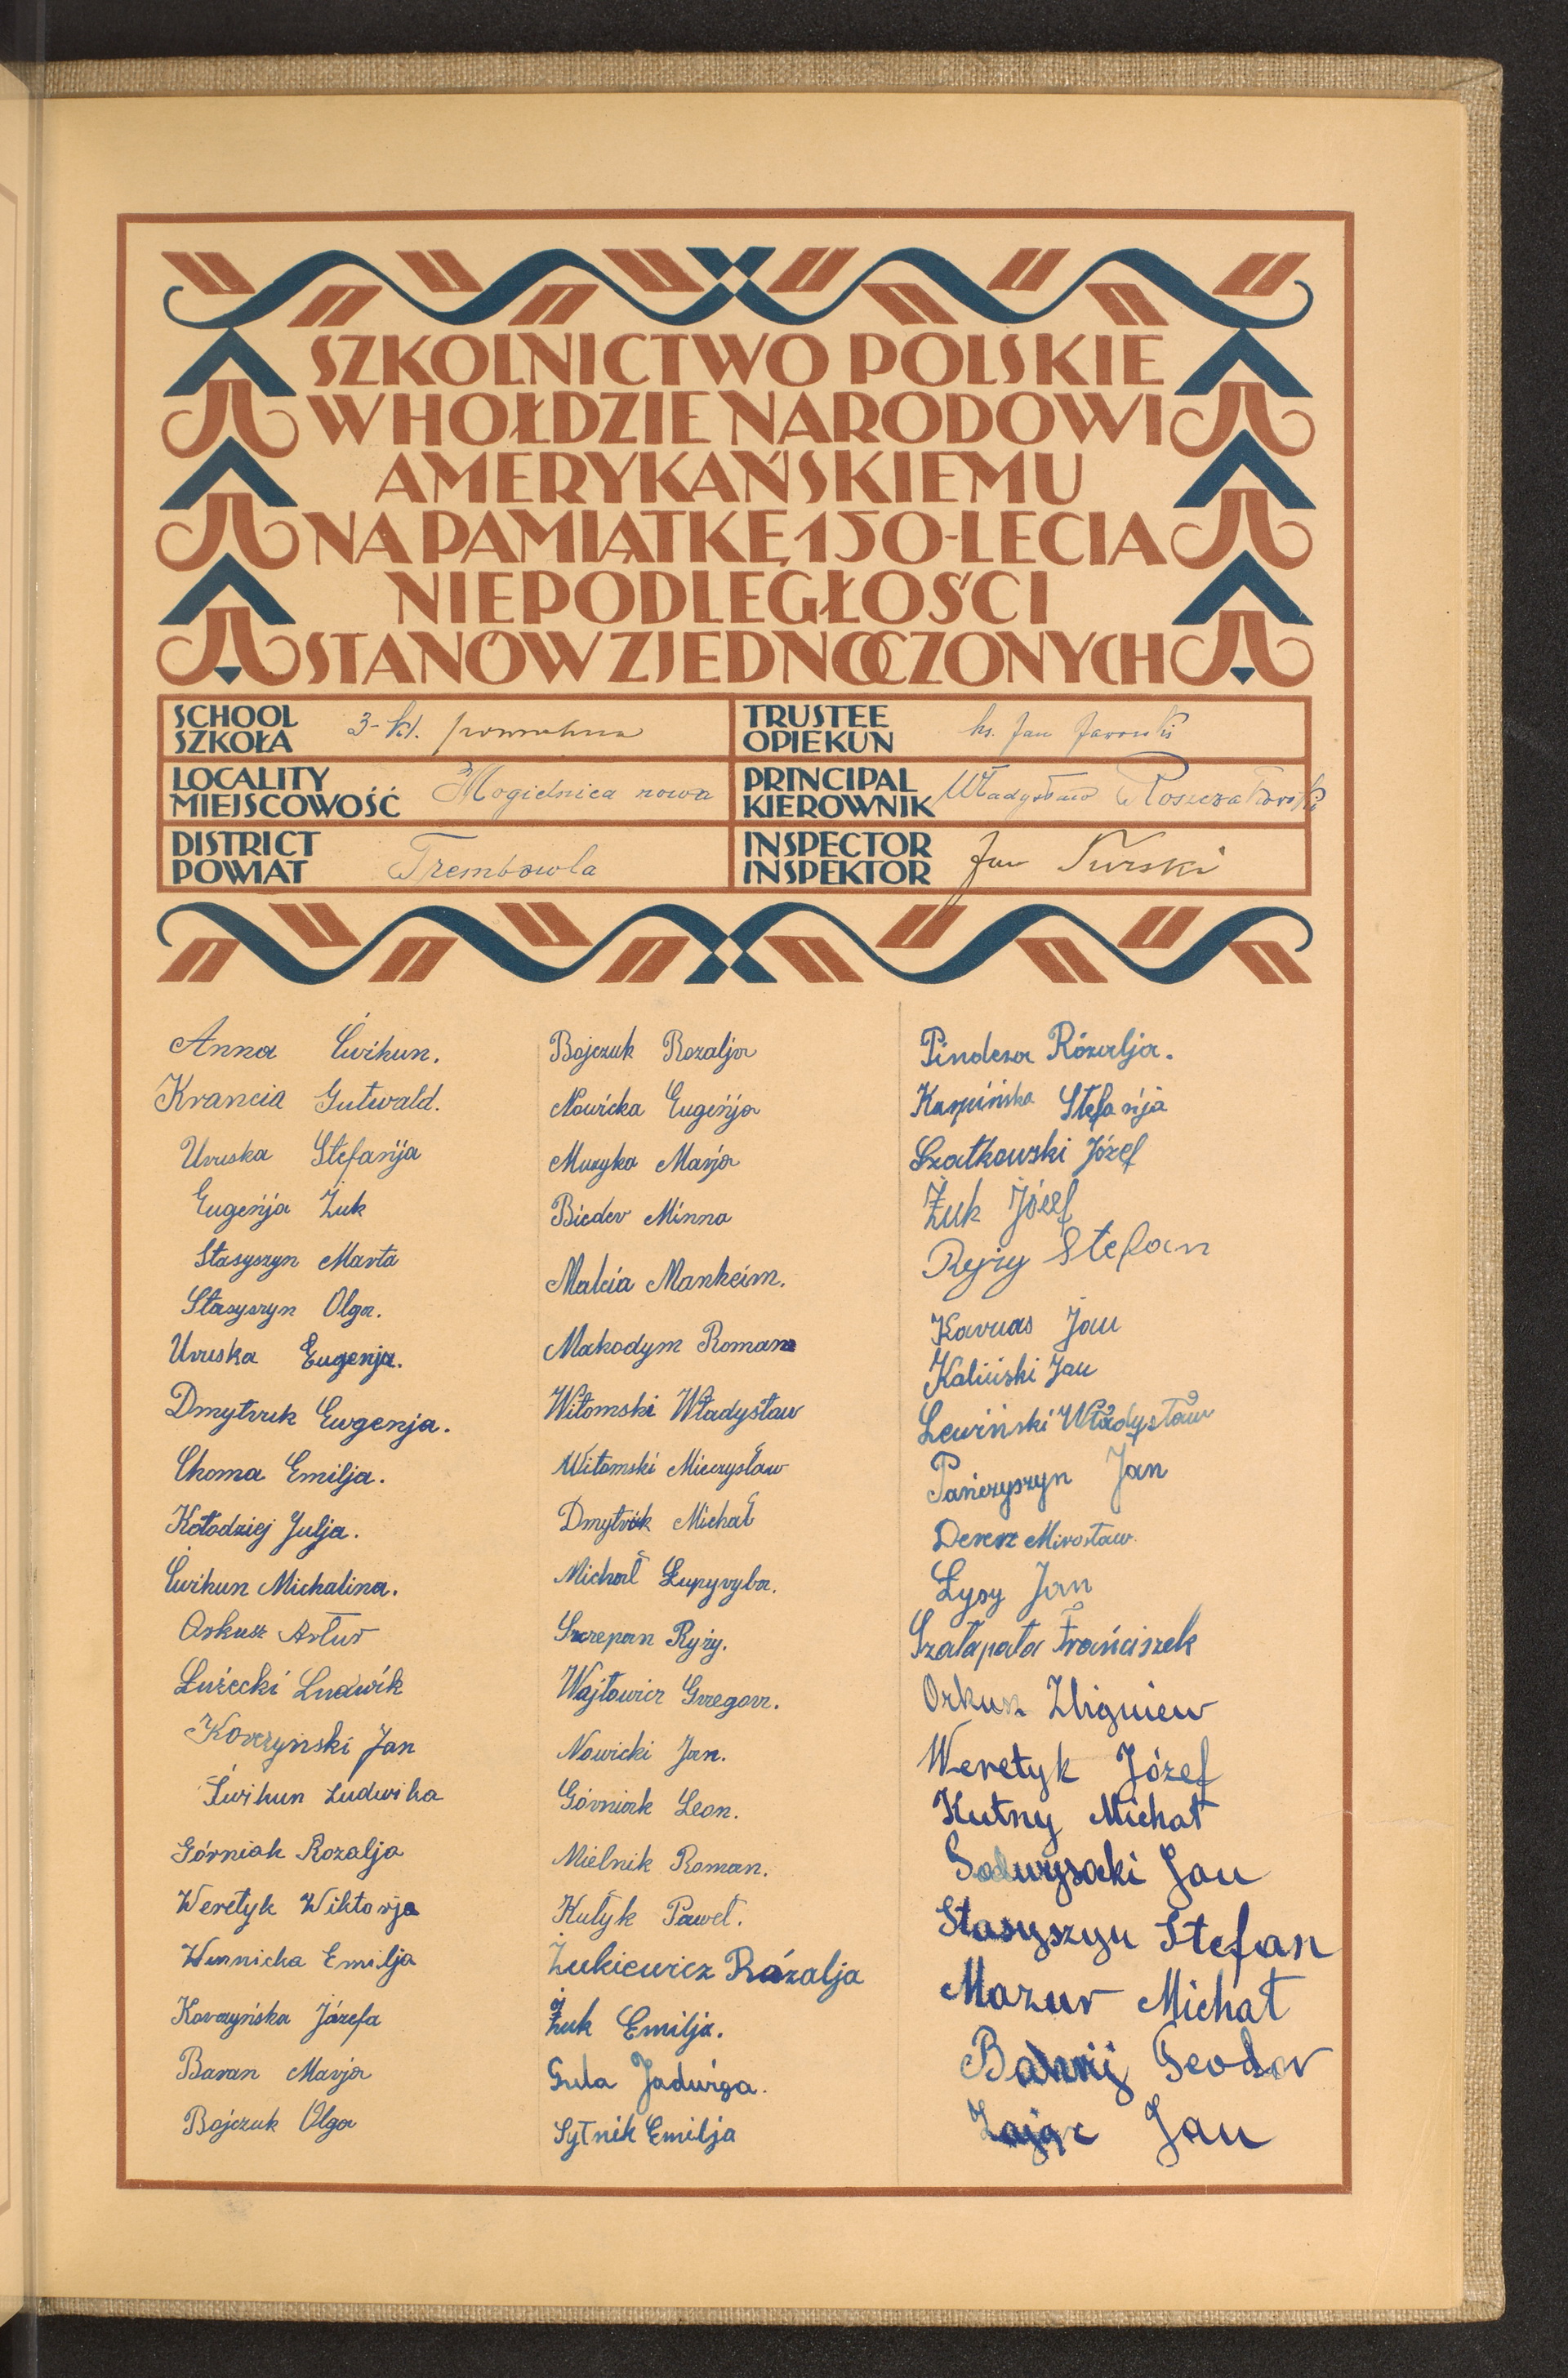 SZKOLNICTWO POLSKIE
W HOŁDZIE NARODOWI
AMERYKAŃSKIEMU
NA PAMIĄTKĘ 150-LECIA
NIEPODLEGŁOŚCI
STANÓW ZJEDNOCZONYCH
SCHOOL
SZKOŁA
3-kl. powszechna
TRUSTEE
OPIEKUN
ks. Jan
LOCALITY
MIEJSCOWOŚĆ
Mogielnica nowa
PRINCIPAL
KIEROWNIK
Władysław
DISTRICT
POWIAT
Trembowla
INSPECTOR
INSPEKTOR
Jan Turski
Anna Ćwikun.
Krancia Gutwald.
Uruska Stefańja
Eugeńja Żuk
Stasyszyn Marta
Stasyszyn Olga.
Uruska Eugenja.
Dmytruk Ewgenja.
Choma Emilja.
Kołodziej Julja.
Ćwikun Michalina.
Orkusz Artur
Łużecki Ludwik
Korczyński Jan
Ćwikun Ludwika
Górniak Rozalja
Weretyk Wiktorja
Winnicka Emilja
Korczyńska Józefa
Baran Marja
Bojczuk Olga
Bojczuk Rozalja
Nowicka Eugeńja
Muzyka Marja
Bieder Minna
Malcia Manheim.
Makodym Roman
Witomski Władysław
Witomski Mieczysław
Dmytruk Michał
Michał Łupyryba.
Szczepan Ryży.
Wojtowicz Grzegorz.
Nowicki Jan.
Górniak Leon.
Mielnik Roman.
Kutyk Paweł.
Żukiewicz Rózalja
Żuk Emilja.
Gula Jadwiga.
Sytnik Emilja
Pindera Rózalja.
Karpińska Stefańja
Szatkowski Józef
Żuk Józef
Ryży Stefan
Karwas Jan
Kaliński Jan
Lewiński Władysław
Pańczyszyn Jan
Deresz Mirosław.
Łysy Jan
Szałapata Frańciszek
Orkusz Zbigniew
Weretyk Józef
Kutny Michał
Sodwysocki Jan
Stasyszyn Stefan
Mazur Michał
Teodor
Zając Jan